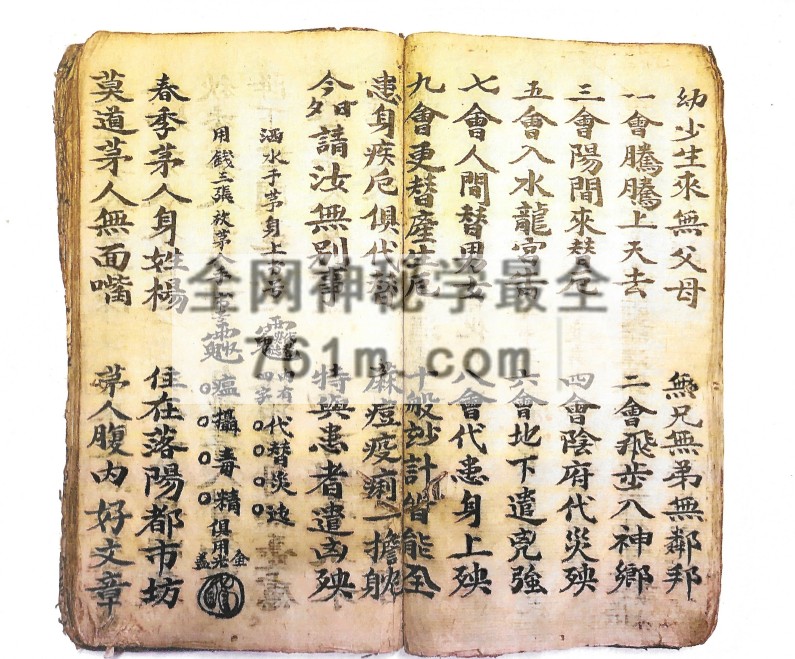 幼少生來無父母 無兄無弟無鄰邦
一會騰騰上天去 二會飛步入神鄉
三會陽間來替厄 四會陰府代災殃
五會入水龍宮 六會地下遣兇強
七會人間替男 八會代患身上殃
九會更替產生厄 十般妙計皆能全
患身疾厄俱代替 麻痘疫痢一擔躭
今日請汝無別事 特與患者遣凶殃
洒水于茅身上 代替災
用錢三張放茅人 瘟攝毒精俱用 金
春季茅人身姓楊 住在落陽都市坊
莫道茅人無面嘴 茅人腹內好文章
全网神秘学最全
761m.com